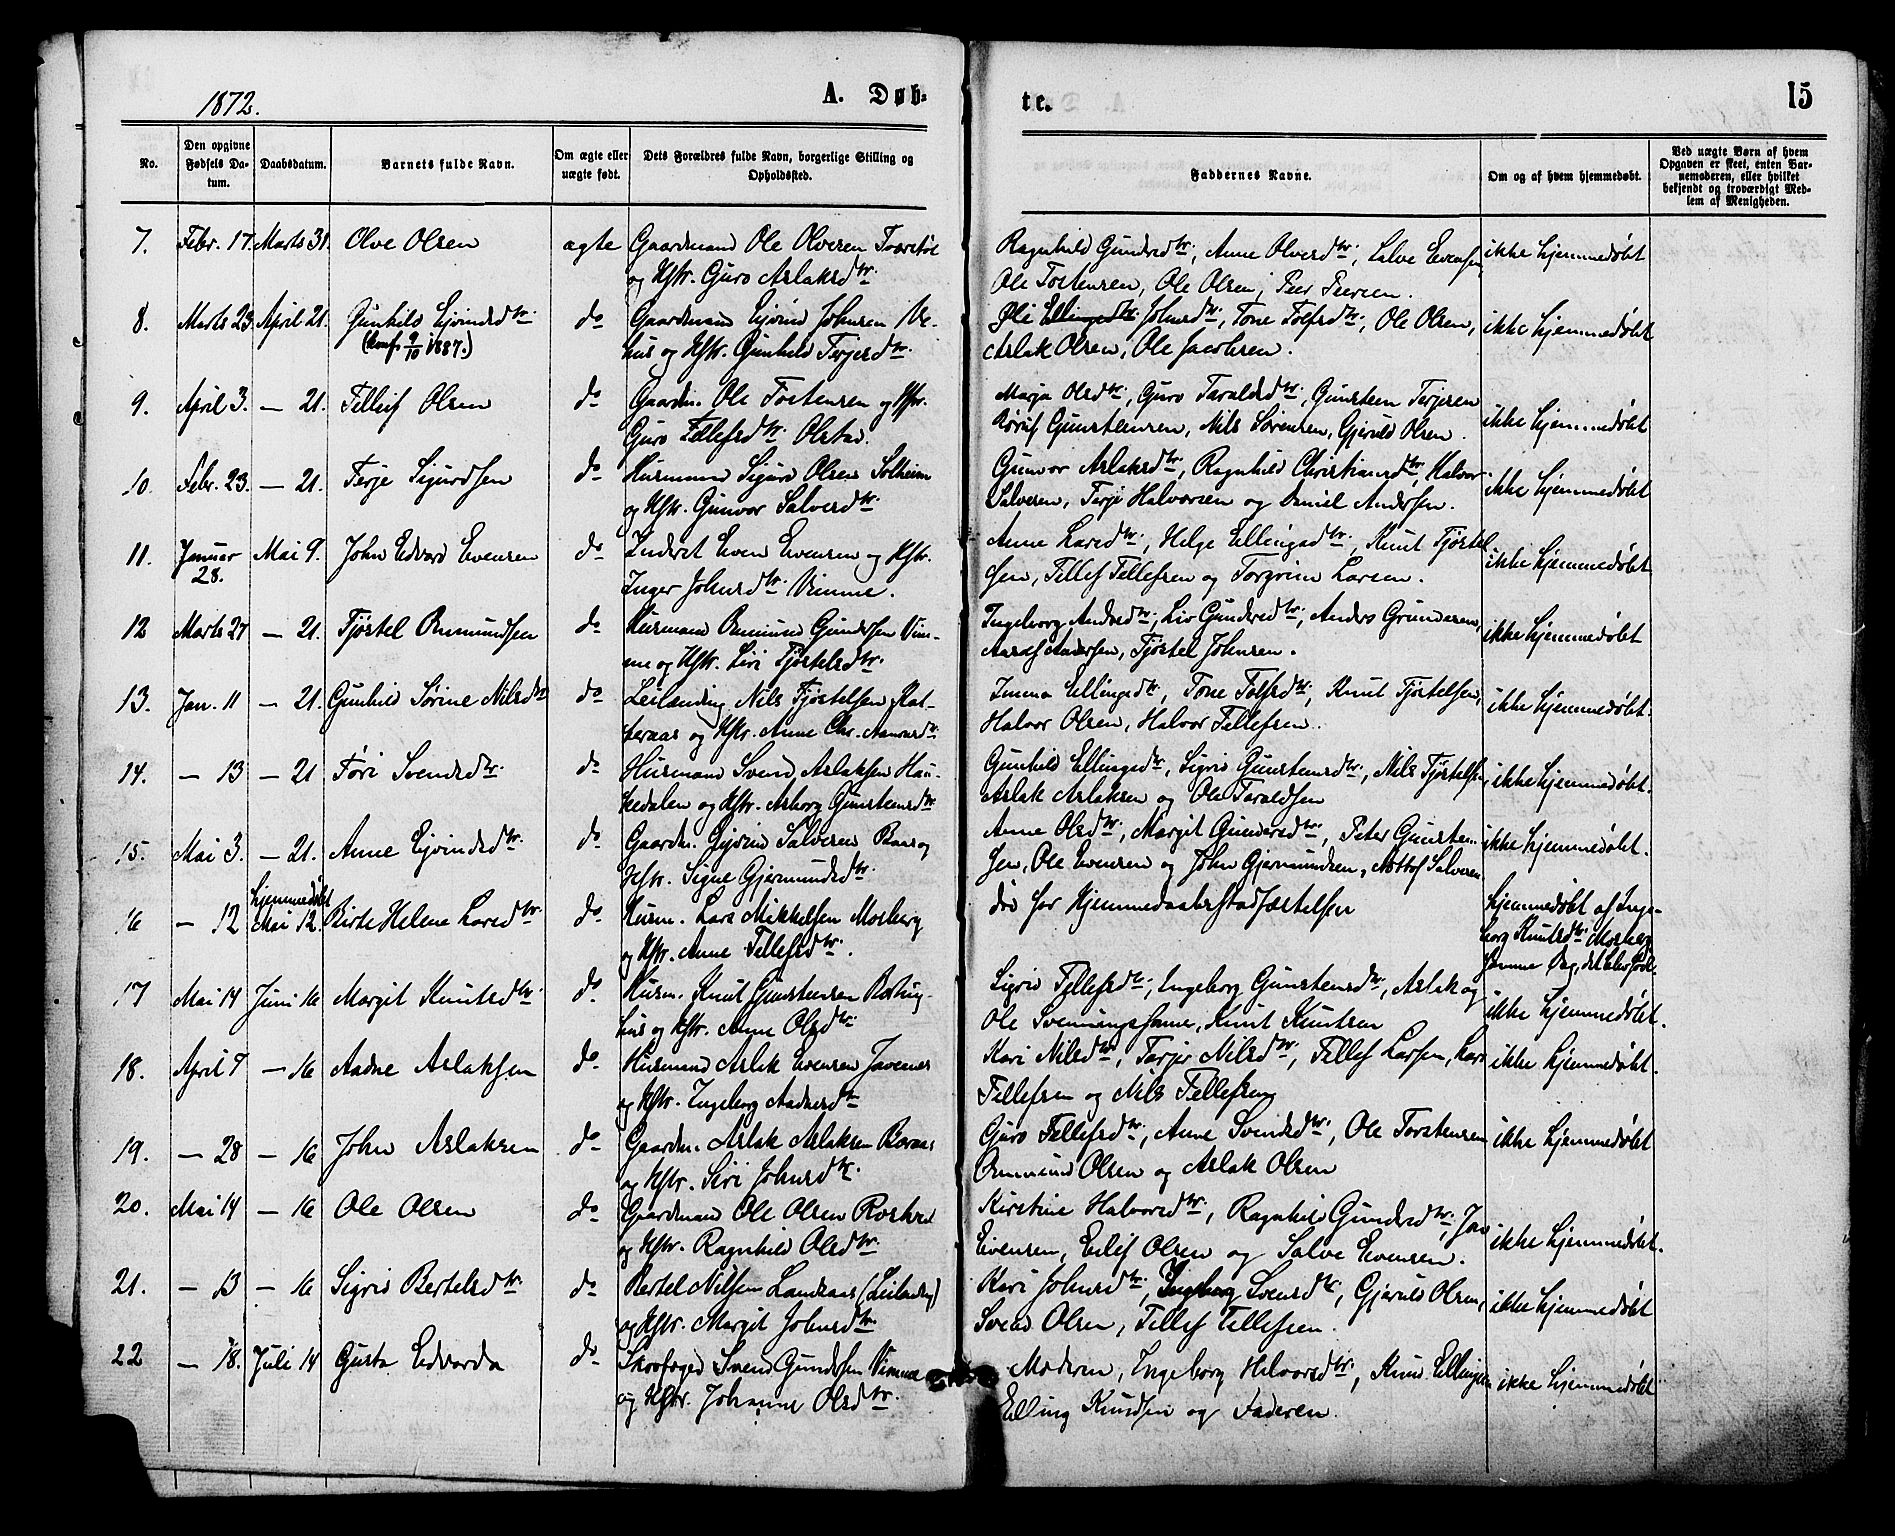 1872.
A. Døb=
te.
15
No.
Den opgivne Fødsels Da-tum.
Daabsdatum.
Barnets fulde Navn.
Om ægte eller uægte født.
Dets Forældres fulde Navn, borgerlige Stilling og Opholdssted.
Faddernes Navne.
Om og af hvem hjemmedøbt.
Ved uægte Børn af hvem Opgaven er skeet, enten Bar-nemoderen, eller hvilket bekjendt og troværdigt Med-lem af Menigheden.
7. Febr. 17. Marts 31. Olve Olsen ægte Gaardmand Ole Olvesen
og Hstr. Guro Aslaksdtr.
Ragnhild Gundersdtr., Anne Olvesdtr., Salve Evensen
Ole Tostensen, Ole Olsen, Peer Peersen.
ikke hjemmedøbt
8. Marts 23. April 21. Gunhild Eivindsdtr. do Gaardmand Eivind Johnsen Ve-
(konf. 9/10 1887.)
hus og Hstr. Gunhild Terjesdtr.
Johnsdtr., Tone Tolfsdtr., Ole Olsen,
Aslak Olsen, Ole Jacobsen.
ikke hjemmedøbt
9. April 3. — 21. Tellef Olsen do Gaardm. Ole Tostensen og Hstr.
Guro Tellefsdtr. Olstad.
Marja Olsdtr., Guro Taraldsdtr., Gunsten Terjesen
Gunstensen, Nils Sørensen, Gjeruld Olsen.
ikke hjemmedøbt
10. Febr. 23. — 21. Terje Sigurdsen do Husmand Sigurd Olsen Solheim
og Hstr. Gunvor Salvesdtr.
Gunvor Aslaksdtr., Ragnhild Christiansdtr., Halvor
Salvesen, Terje Halvorsen og Daniel Andersen.
ikke hjemmedøbt
11. Januar 28. Mai 9. John Edvard Evensen do Inderst Even Evensen og Hstr.
Inger Johnsdtr. Vimme.
Anne Larsdtr., Helge Ellingsdtr., Knut Tjøstel
sen, Tellef Tellefsen og Torgrim Larsen.
ikke hjemmedøbt
12 Marts 27 — 21. Tjøstel Omundsen do Husmand Omund Gundersen Vim-
me og Hstr. Siri Tjøstelsdtr.
Ingeborg Andersdtr., Liv Gundersdtr., Anders Gundersen,
Andersen, Tjøstel Johnsen.
ikke hjemmedøbt
13. Jan. 11 — 21. Gunhild Sørine Nilsdtr do Leilænding Nils Tjøstelsen Rat-
og Hstr. Anne Chr. Aanonsdtr.
Emma Ellingsdtr., Tone Tolfsdtr., Knut Tjøstelsen,
Halvor Olsen, Halvor Tellefsen.
ikke hjemmedøbt.
14. — 13 — 21 Tøri Svendsdtr. do Husmand Svend Aslaksen Hau-
kedalen og Hstr. Asborg Gunstensdtr.
Gunhild Ellingsdtr., Sigrid Gunstensdtr., Nils Tjøstelsen,
Aslak Aslaksen og Ole Taraldsen
ikke hjemmedøbt.
15. Mai 3. — 21. Anne Eivindsdtr. do Gaardm. Eivind Salvesen Baas og
Hstr. Signe Gjermundsdtr.
Anne Olsdtr., Margit Gundersdtr., Peter Gunsten-
sen, Ole Evensen og John Gjermundsen, Nottof Salvesen
ikke hjemmedøbt.
16 — 12 hjemmedøbt Mai 12. Birte Helene Larsdtr do Husm. Lars Mikkelsen Mosberg
og Hstr. Anne Tellefsdtr.
død før Hjemmedaabsstadfæstelsen
hjemmedøbt af Inge-
borg Knutsdtr. Mosberg
samme Dag, det blev født.
17 Mai 14 Juni 16 Margit Knutsdtr. do Husm. Knut Gunstensen
hus og Hstr. Anne Olsdtr.
Sigrid Tellefsdtr., Ingeborg Gunstensdtr., Aslak og
Ole Svenningssønner, Knut Knutsen
ikke hjemmedøbt.
18. April 7 — 16 Aadne Aslaksen do Husmand Aslak Evensen Javenes
og Hstr. Ingeborg Aadnesdtr
Kari Nilsdtr., Terjer Nilsdtr., Tellef Larsen, Lars
Tellefsen og Nils Tellefsen
ikke hjemmedøbt.
19. — 28 — 16 John Aslaksen do Gaardm. Aslak Aslaksen Baas
og Hstr. Siri Johnsdtr.
Guro Tellefsdtr., Anne Svendsdtr., Ole Torstensen
Omund Olsen og Aslak Olsen
ikke hjemmedøbt
20. Mai 14 — 16 Ole Olsen do Gaardmand Ole Olsen
og Hstr. Ragnhild Olsdtr.
Kirstine Halvorsdtr., Ragnhild Gundersdtr., Jon
Evensen, Eilef Olsen og Salve Evensen.
ikke hjemmedøbt.
21. — 13 — 16 Sigrid Bertelsdtr do Bertel Nilsen Landaas (Leilænding)
og Hstr. Margit Johnsdtr.
Kari Johnsdtr., Ingeborg Svensdtr., Gjeruld Olsen,
Svend Olsen, Tellef Tellefsen.
ikke hjemmedøbt
22 — 18. Juli 14 Gusta Edvarda do Skovfoged Svend Gundersen Vimme
og Hstr. Johanne Olsdtr.
Moderen, Ingeborg Halvorsdtr., Knud Ellingsen
Elling Knudsen og Faderen.
ikke hjemmedøbt